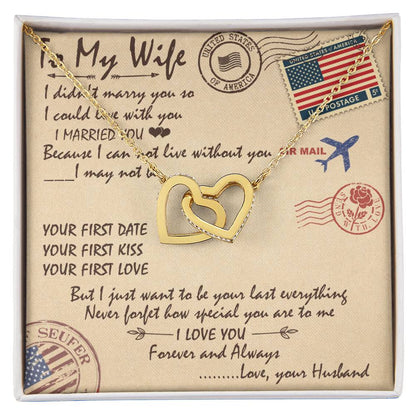 To My Wife
UNITED STATES
OF AMERICA
U.S. POSTAGE 5¢
I didn't marry you so
I could live with you
I MARRIED YOU
Because I can not live without you
AIR MAIL
___I may not be
YOUR FIRST DATE
YOUR FIRST KISS
YOUR FIRST LOVE
But I just want to be your last everything
Never forget how special you are to me
I LOVE YOU
Forever and Always
.........Love, your Husband
SEUFER